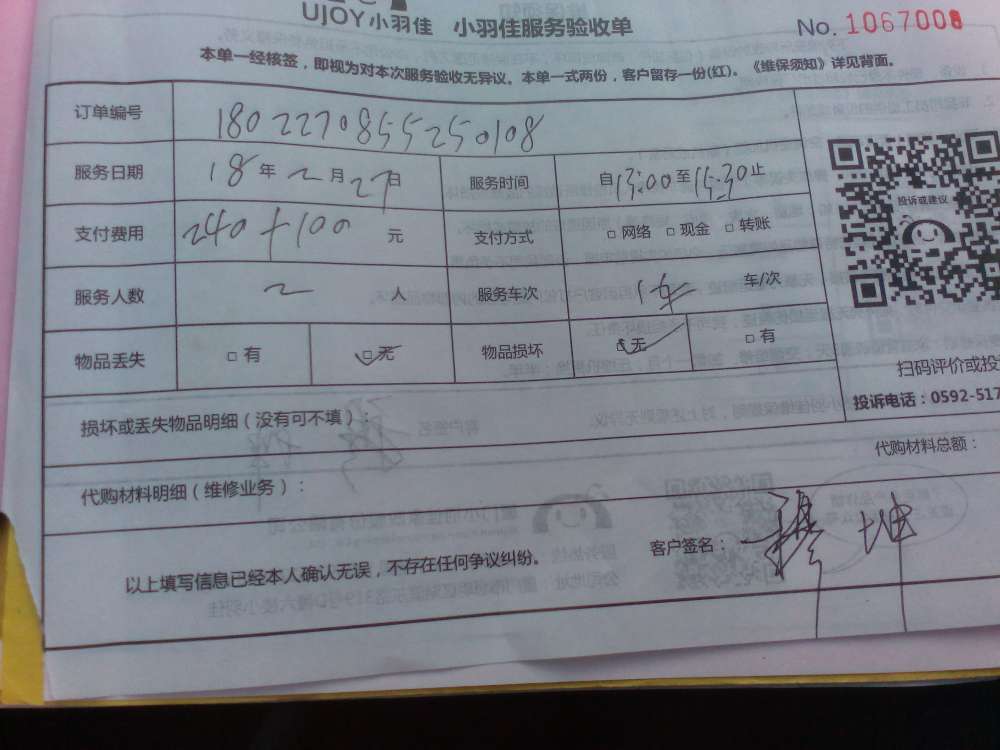 UJOY小羽佳 小羽佳服务验收单 No. 1067008
本单一经核签，即视为对本次服务验收无异议。本单一式两份，客户留存一份(红)。《维保须知》详见背面。
订单编号 180227085525​0108
服务日期 18年2月27日 服务时间 自13:00至15:30止
投诉或建议
支付费用 240+100 元 支付方式 □网络 □现金 □转账
服务人数 2 人 服务车次 1车 车/次
物品丢失 □有 □无 物品损坏 □无 □有
扫码评价或投
投诉电话：0592-517
损坏或丢失物品明细（没有可不填）：
代购材料总额：
代购材料明细（维修业务）：
客户签名： 坤
以上填写信息已经本人确认无误，不存在任何争议纠纷。